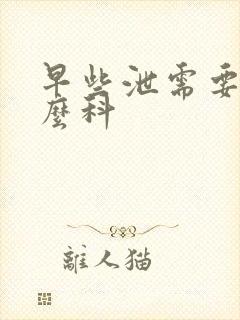 早些泄需要
麼科
離人猫